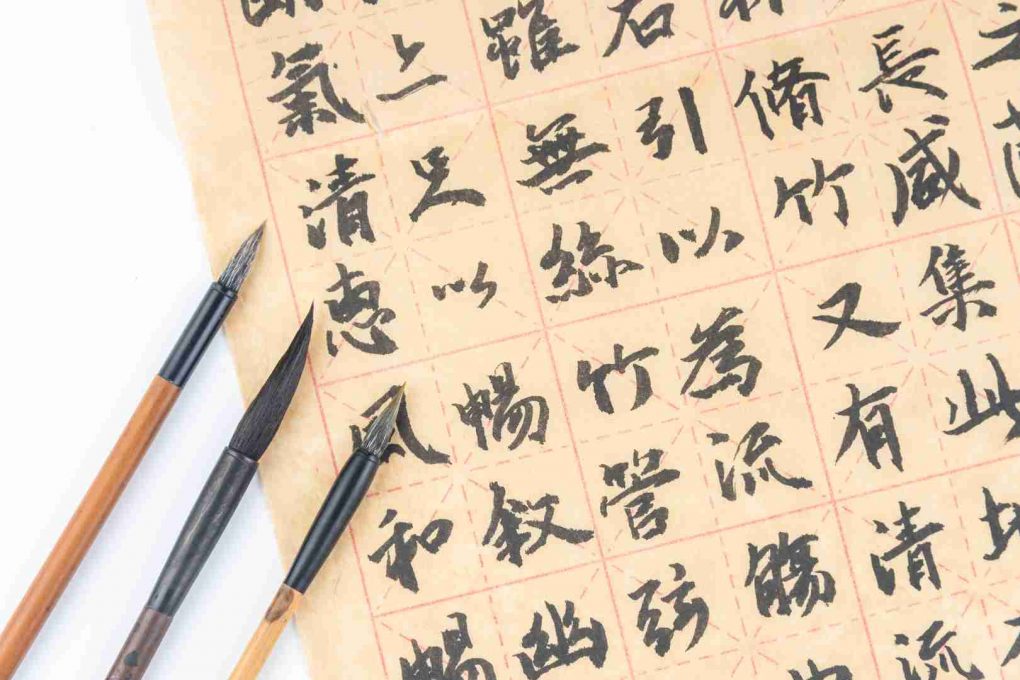 長咸集此
脩竹又有清流
右引以為流觴
雖無絲竹管弦
上足以暢叙幽
氣清惠風和暢